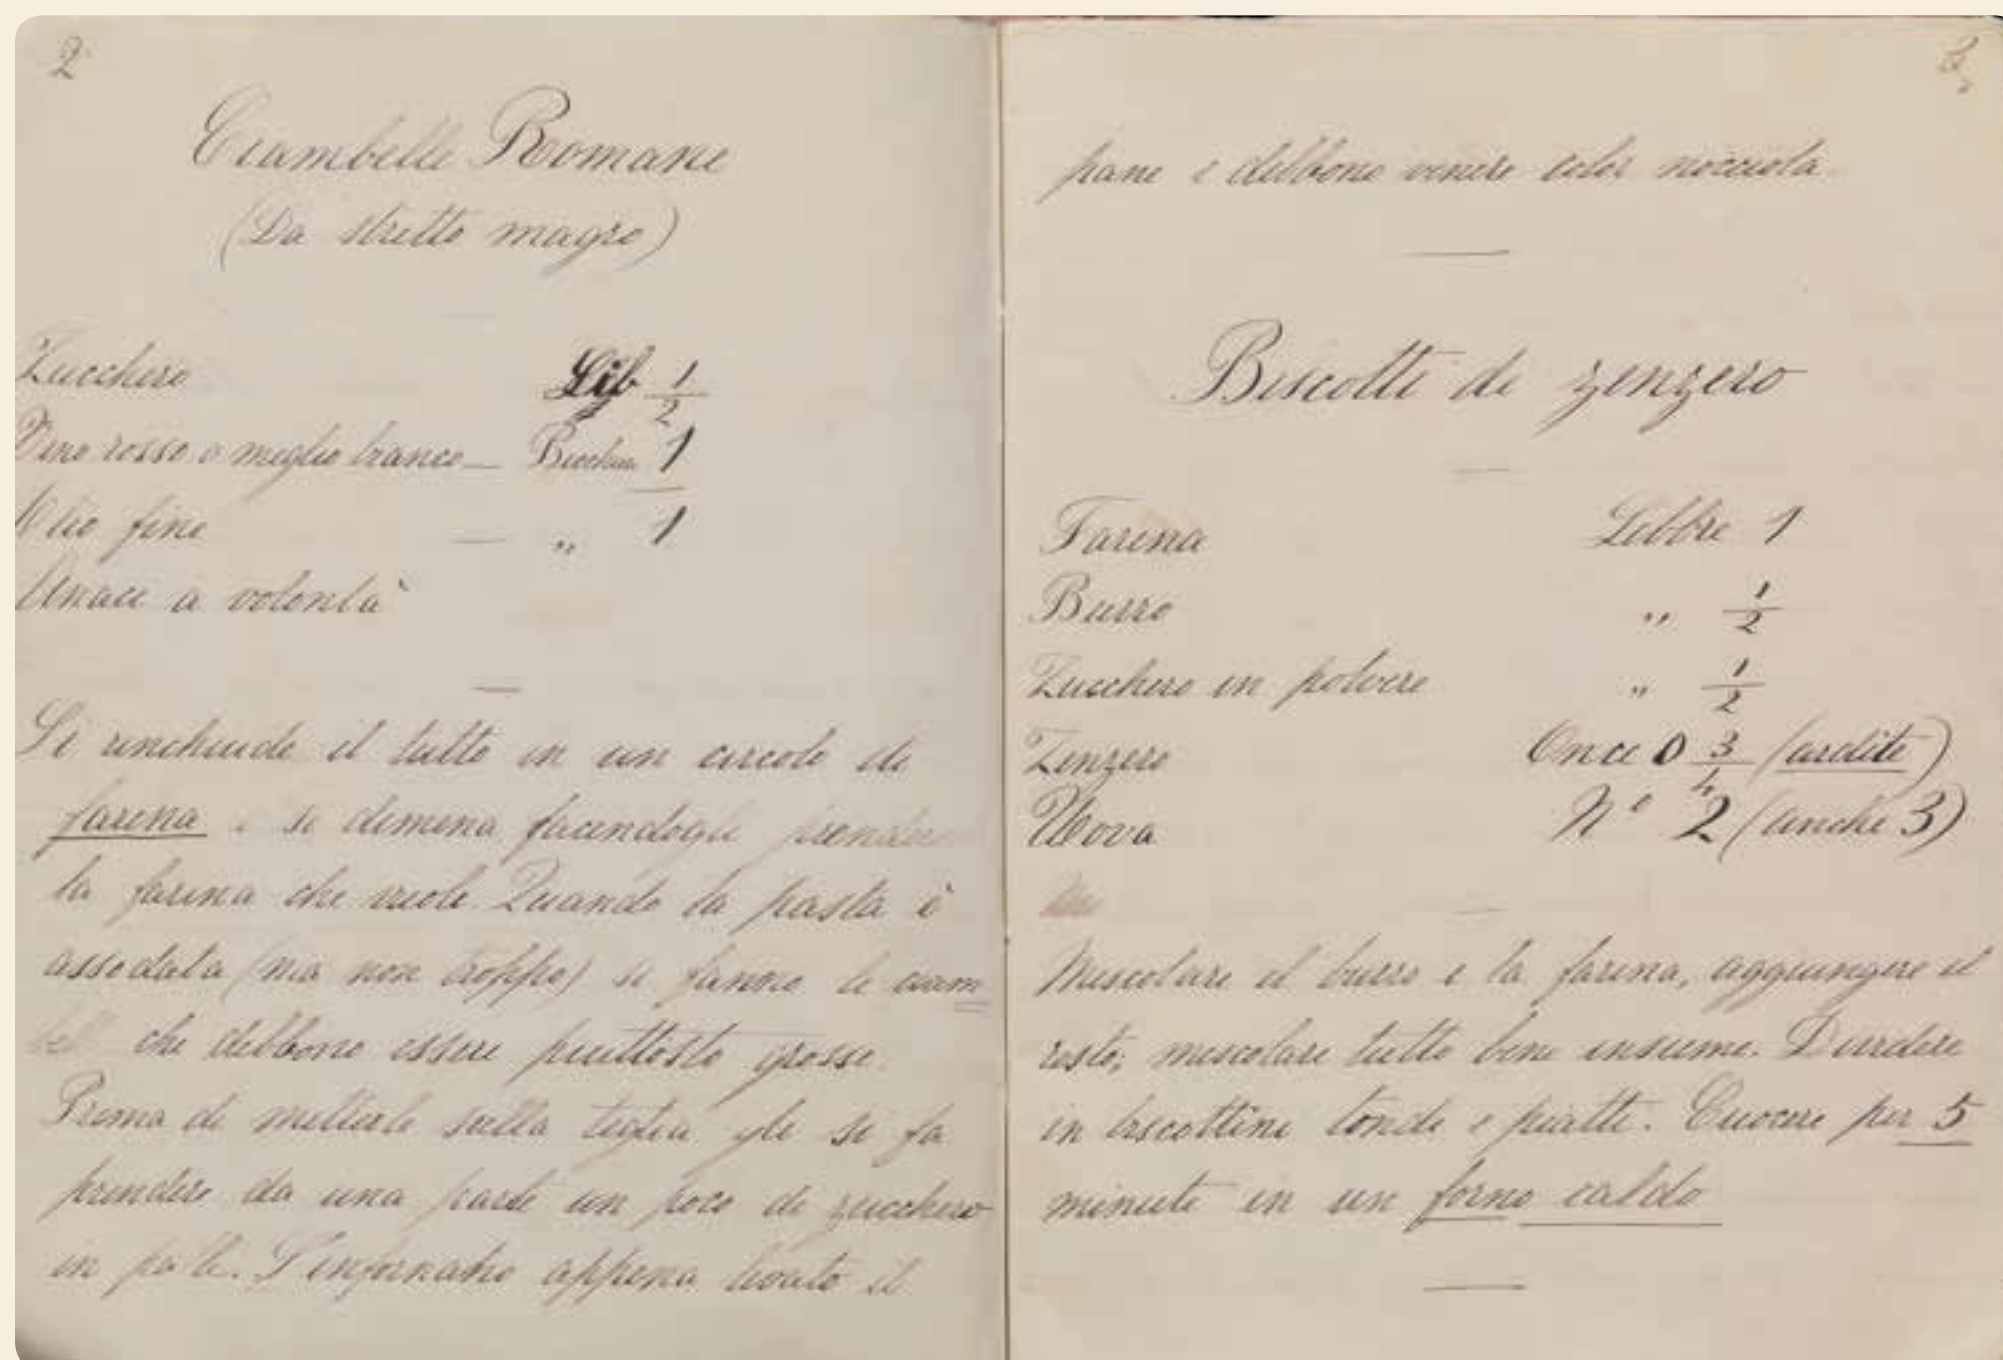 2
Ciambelle Romane
(Da stretto magro)
Zucchero Lib 1/2
Vino rosso o meglio bianco — Bicchiere 1
Olio fine — „ 1
Anaci a volontà
Si rinchiude il tutto in un circolo di
farina e si dimena facendogli prendere
la farina che vuole. Quando la pasta è
assodata (ma non troppo) si fanno le ciam
belle che debbono essere piuttosto grosse.
Prima di metterle sulla teglia gli si fa
prendere da una parte un poco di zucchero
in S'infornano appena levato il
3
pane e debbono venire color nocciola.
Biscotti di zenzero
Farina Libbre 1
Burro „ 1/2
Zucchero in polvere „ 1/2
Zenzero Once 0 3/4 (ardite)
Uova N° 2 (anche 3)
Mescolare il burro e la farina, aggiungere il
resto, mescolare tutto bene insieme. Dividere
in biscottini tondi e piatti. Cuocere per 5
minuti in un forno caldo